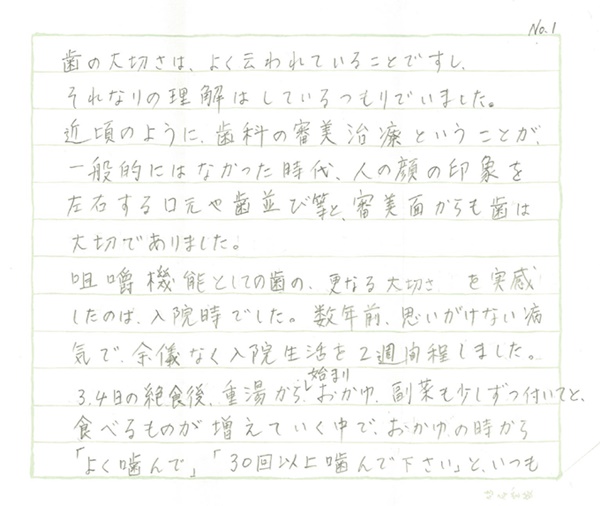 No.1
歯の大切さは、よく云われていることですし、
それなりの理解はしているつもりでいました。
近頃のように、歯科の審美治療ということが、
一般的にはなかった時代、人の顔の印象を
左右する口元や歯並び等と、審美面からも歯は
大切でありました。
咀嚼機能としての歯の、更なる大切さ を実感
したのは、入院時でした。数年前、思いがけない病
気で、余儀なく入院生活を2週間程しました。
3.4日の絶食後、重湯から始まりおかゆ、副菜も少しずつ付いてと、
食べるものが増えていく中で、おかゆの時から
「よく噛んで」「30回以上噛んで下さい」と、いつも